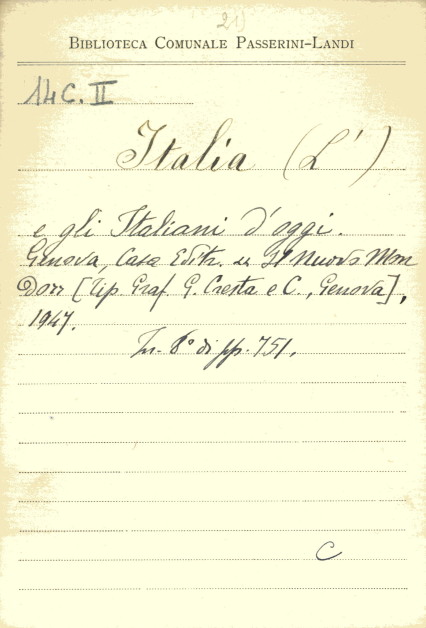 21
BIBLIOTECA COMUNALE PASSERINI-LANDI
14 C. II
Italia (L')
e gli Italiani d'oggi.
Genova, Casa Editr. Il Nuovo
[Tip. Graf. G. Cresta e C., Genova],
1947.
In-8° di pp. 751.
C